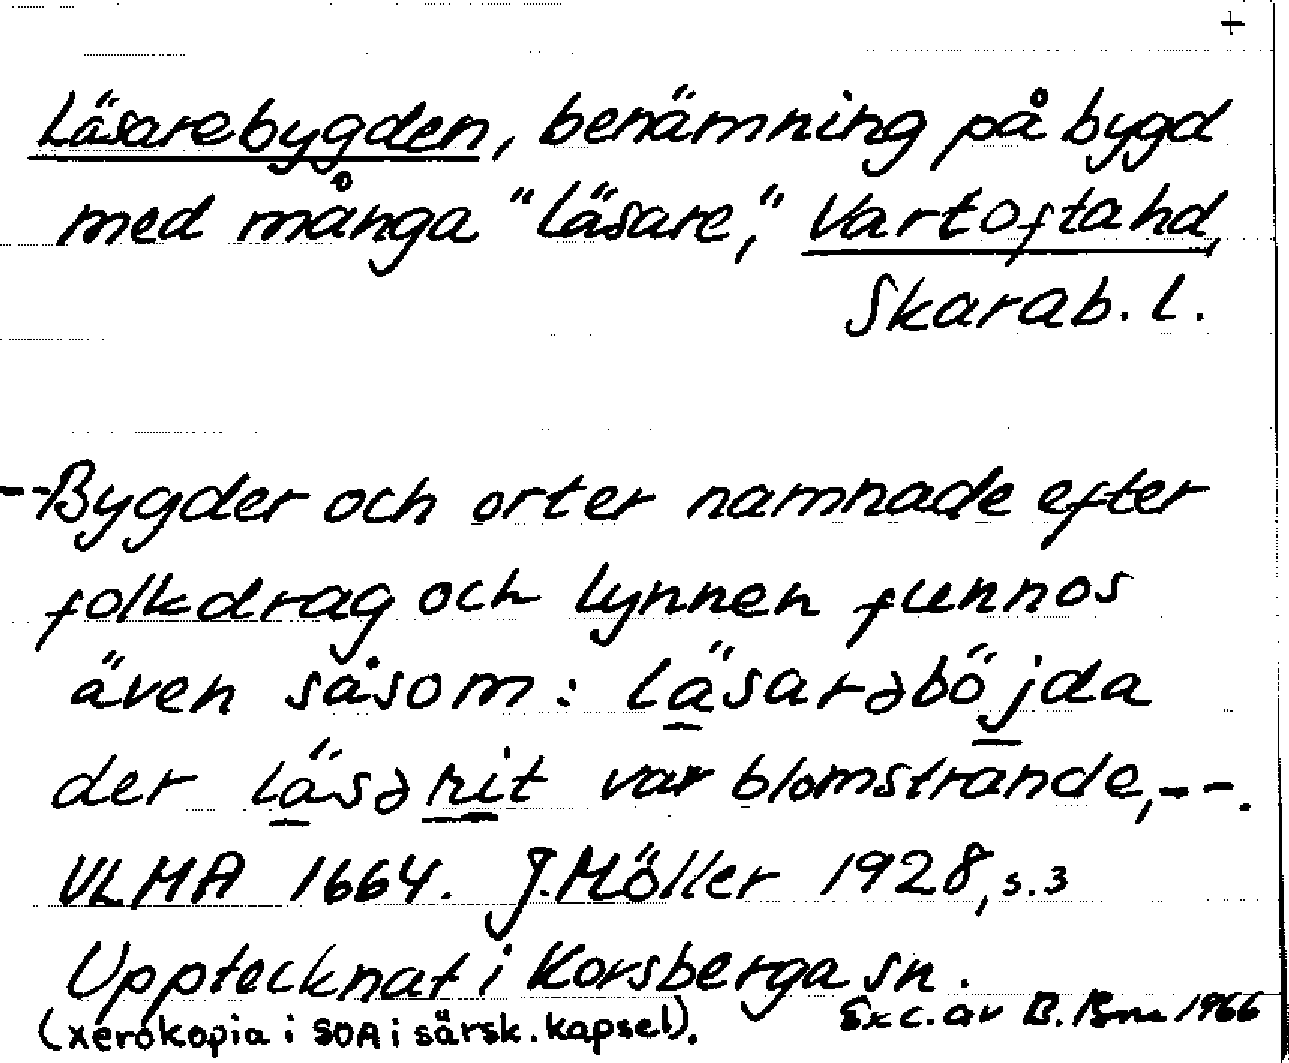 +
Läsarebygden, benämning på bygd
med många "läsare", Vartofta hd,
Skarab. l.
--Bygder och orter namnade efter
folkdrag och lynnen funnos
även såsom: läsarəböjda
der läsərit var blomstrande,--.
VLMA 1664. J. Möller 1928, s. 3
Upptecknat i Korsberga sn.
(xerokopia i SOA i särsk. kapsel).
Exc. av B. 1966